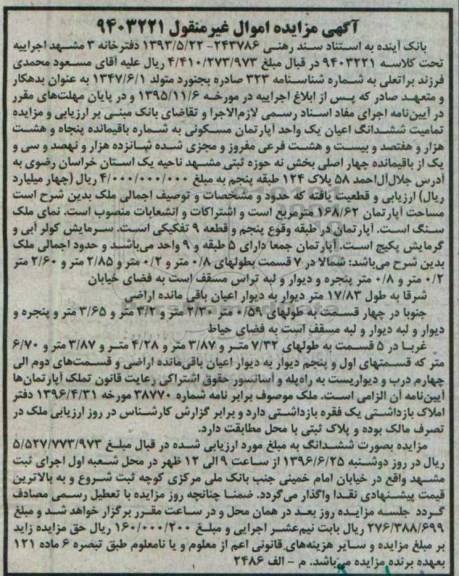 آگهی مزایده اموال غیرمنقول ۹۴۰۳۲۲۱
بانک آینده به استناد سند رهنی ۲۴۳۷۸۶- ۱۳۹۳/۵/۲۲ دفترخانه ۳ مشهد اجراییه
تحت کلاسه ۹۴۰۳۲۲۱ در قبال مبلغ ۴/۴۱۰/۲۷۳/۹۷۳ ریال علیه آقای مسعود محمدی
فرزند براتعلی به شماره شناسنامه ۳۲۳ صادره بجنورد متولد ۱۳۴۷/۶/۱ به عنوان بدهکار
و متعهد صادر که پس از ابلاغ اجراییه در مورخه ۱۳۹۵/۱۱/۶ و در پایان مهلت‌های مقرر
در آیین‌نامه اجرای مفاد اسناد رسمی لازم‌الاجرا و تقاضای بانک مبنی بر ارزیابی و مزایده
تمامیت ششدانگ اعیان یک واحد آپارتمان مسکونی به شماره باقیمانده پنجاه و هشت
هزار و هفتصد و بیست و هشت فرعی مفروز و مجزی شده شانزده هزار و نهصد و سی و
یک از باقیمانده چهار اصلی بخش نه حوزه ثبتی مشهد ناحیه یک استان خراسان رضوی به
آدرس جلال‌آل‌احمد ۵۸ پلاک ۱۲۴ طبقه پنجم به مبلغ ۴/۰۰۰/۰۰۰/۰۰۰ ریال (چهار میلیارد
ریال) ارزیابی و قطعیت یافته که حدود و مشخصات و توصیف اجمالی ملک بدین شرح است
مساحت آپارتمان ۱۶۸/۶۲ مترمربع است و اشتراکات و انشعابات منصوب است. نمای ملک
سنگ است. آپارتمان در طبقه وقوع پنجم و قطعه ۹ تفکیکی است. سرمایش کولر آبی و
گرمایش پکیج است. آپارتمان جمعا دارای ۵ طبقه و ۹ واحد می‌باشد و حدود اجمالی ملک
بدین شرح می‌باشد: شمالا در ۷ قسمت بطولهای ۰/۸ متر و ۰/۲ متر و ۲/۸۵ متر و ۲/۶۰ متر
۰/۲ متر و ۰/۸ متر پنجره و دیوار و لبه تراس مسقف است به فضای خیابان
شرقا به طول ۱۷/۸۳ متر دیوار به دیوار اعیان باقی مانده اراضی
جنوبا در چهار قسمت به طولهای ۰/۵۹ متر ۳/۳۰ متر و ۴/۲ متر و ۳/۶۵ متر و پنجره و
دیوار و لبه دیوار و لبه مسقف است به فضای حیاط
غربا در ۵ قسمت به طولهای ۷/۳۲ متر و ۳/۸۷ متر و ۴/۲۸ متر و ۳/۸۷ متر و ۶/۷۰
متر که قسمتهای اول و پنجم دیوار به دیوار اعیان باقی‌مانده اراضی و قسمت‌های دوم الی
چهارم درب و دیواریست به راه‌پله و آسانسور حقوق اشتراکی رعایت قانون تملک آپارتمان‌ها
آیین‌نامه آن الزامی است. ملک موصوف برابر نامه شماره ۳۸۷۷۰ مورخه ۱۳۹۶/۴/۳۱ دفتر
املاک بازداشتی یک فقره بازداشتی دارد و برابر گزارش کارشناس در روز ارزیابی ملک در
تصرف مالک بوده و پلاک ثبتی با محل مطابقت دارد.
مزایده بصورت ششدانگ به مبلغ مورد ارزیابی شده در قبال مبلغ ۵/۵۲۷/۷۷۳/۹۷۳
ریال در روز دوشنبه ۱۳۹۶/۶/۲۵ از ساعت ۹ الی ۱۲ ظهر در محل شعبه اول اجرای ثبت
مشهد واقع در خیابان امام خمینی جنب بانک ملی مرکزی کوچه ثبت شروع و به بالاترین
قیمت پیشنهادی نقدا واگذار می‌گردد. ضمنا چنانچه روز مزایده با تعطیل رسمی مصادف
گردد جلسه مزایده روز بعد در همان محل و در ساعت مقرر برگزار خواهد شد و مبلغ
۲۷۶/۳۸۸/۶۹۹ ریال بابت نیم‌عشر اجرایی و مبلغ ۱۶۰/۰۰۰/۲۰۰ ریال حق مزایده زاید
بر مبلغ مزایده و سایر هزینه‌های قانونی اعم از معلوم و یا نامعلوم طبق تبصره ۶ ماده ۱۲۱
بعهده برنده مزایده می‌باشد. م - الف ۲۴۸۶